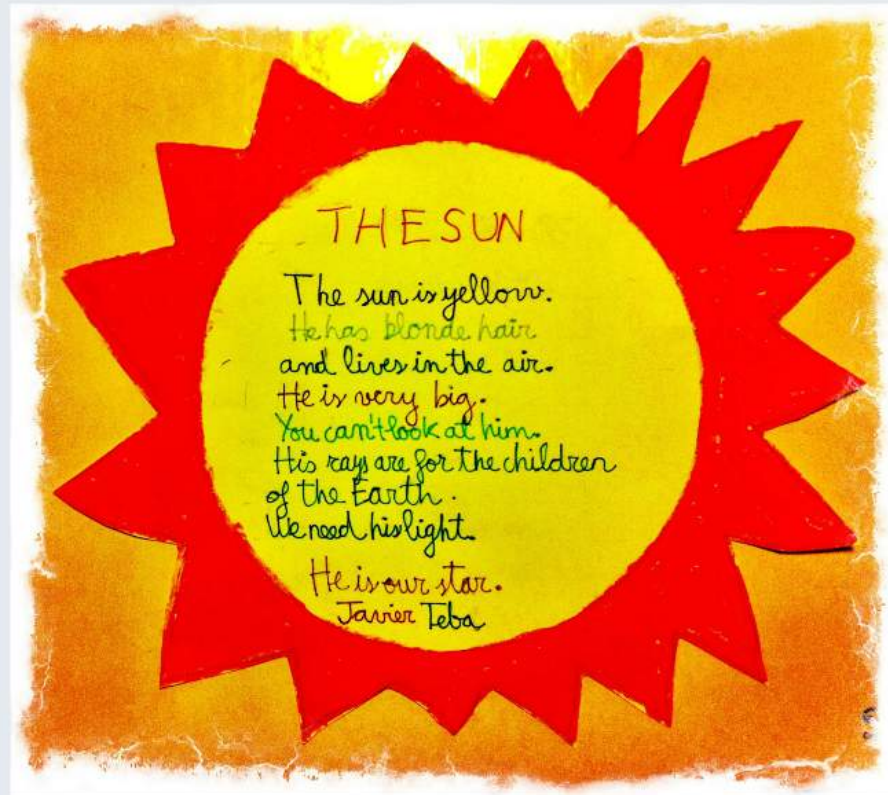 THE SUN
The sun is yellow.
He has blonde hair
and lives in the air.
He is very big.
You can't look at him.
His rays are for the children
of the Earth.
We need his light.
He is our star.
Javier Teba